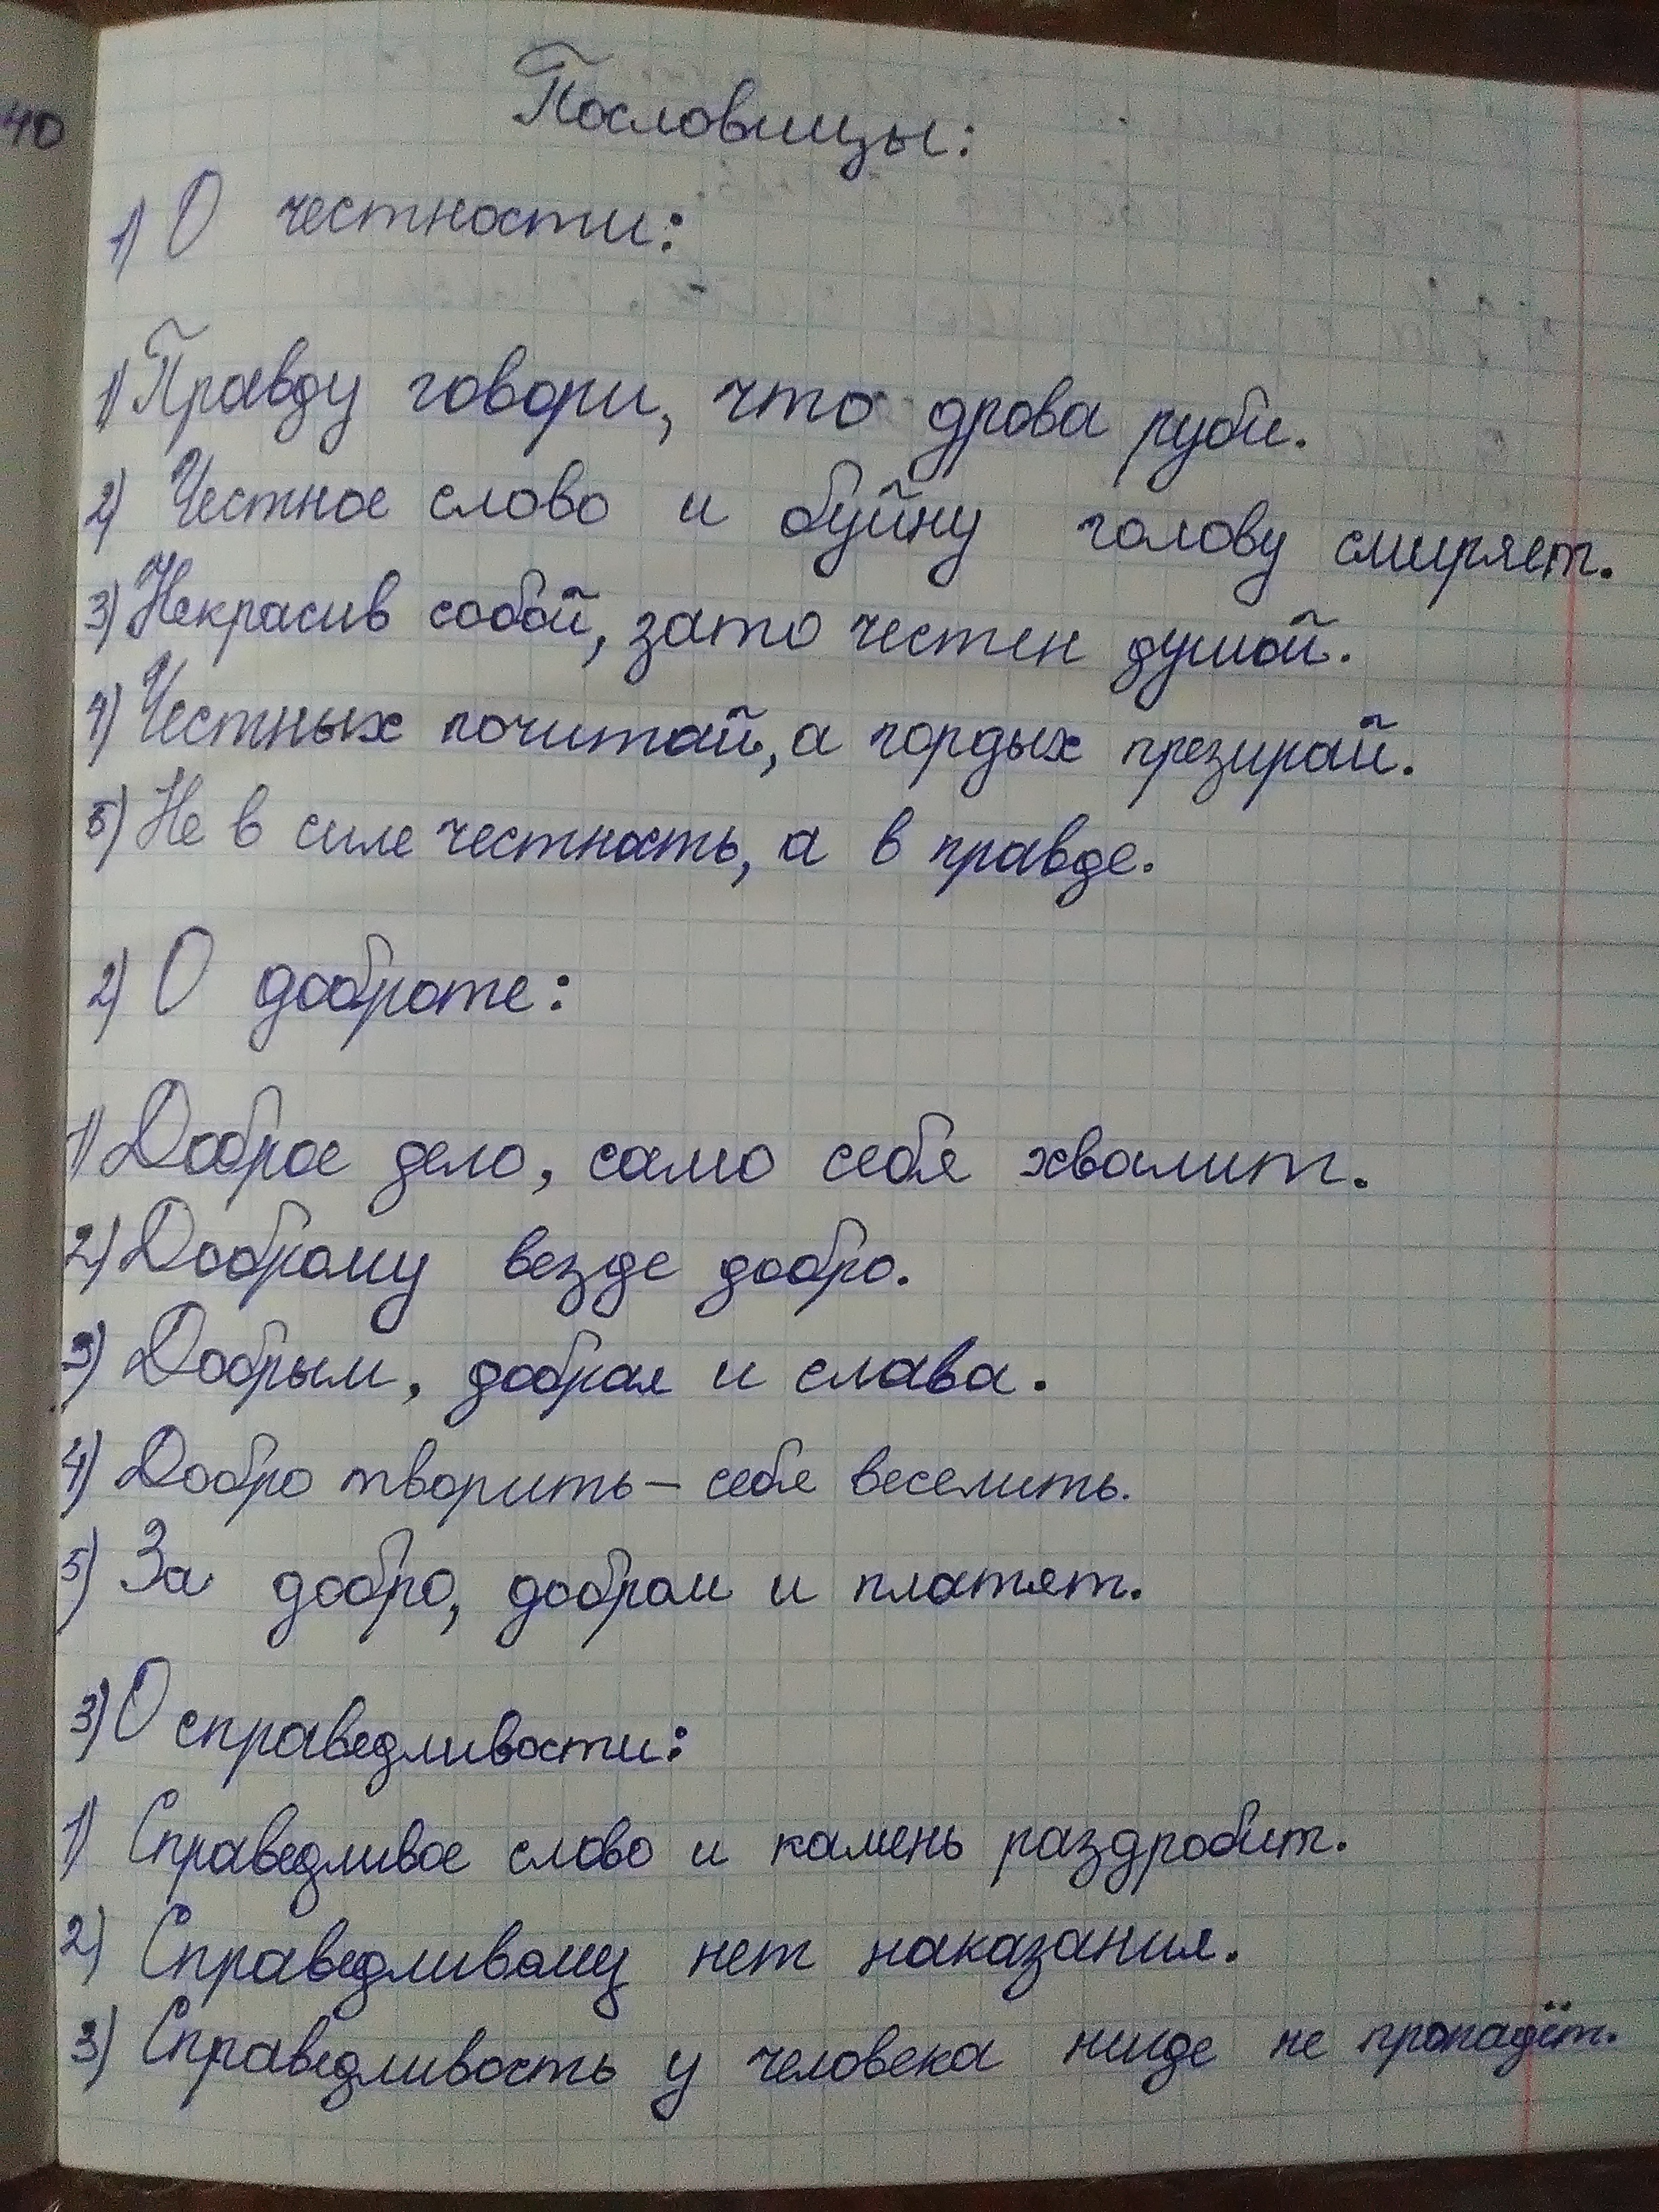 40
Пословицы:
1) О честности:
1) Правду говори, что дрова руби.
2) Честное слово и буйну голову смиряет.
3) Некрасив собой, зато честен душой.
4) Честных почитай, а гордых презирай.
5) Не в силе честность, а в правде.
2) О доброте:
1) Доброе дело, само себя хвалит.
2) Доброму везде добро.
3) Добрым, добрая и слава.
4) Добро творить – себя веселить.
5) За добро, добром и платят.
3) О справедливости:
1) Справедливое слово и камень раздробит.
2) Справедливому нет наказания.
3) Справедливость у человека нигде не пропадёт.